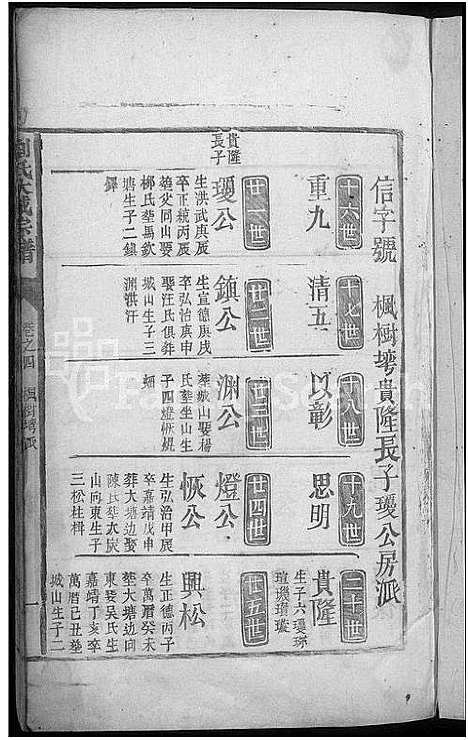 信字號　楓樹塆貴隆長子瓊公房派
十六世
重九
十七世
清五
十八世
以彰
十九世
思明
二十世
貴隆
生子六瓊琳
瑄璣瓚璇
貴隆
長子
廿一世
瓊公
生洪武庚辰
卒正統丙辰
葬父同山娶
柳氏塋馬欽
塘生子二鎮
鐸
廿二世
鎮公
生宣德庚戌
卒弘治庚申
娶汪氏俱葬
城山生子三
渊洪汗
廿三世
渊公
葬城山娶楊
氏塋坐山生
子四燈恢焜
細
廿四世
燈公
恢公
生弘治甲辰
卒嘉靖戊申
葬大塘边娶
陳氏塋太炭
山向東生子
三松柱楫
廿五世
興松
生正德丙子
卒萬曆癸未
塋大塘边向
東娶吳氏生
嘉靖丁亥卒
萬曆己丑塋
城山生子二
氏大成宗譜
卷之四
楓樹塆派
一